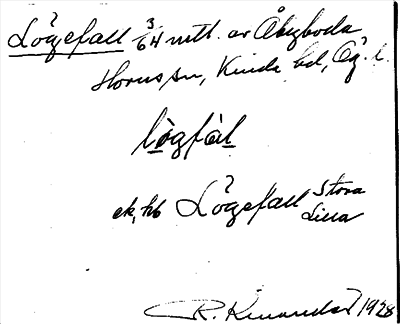 Lögefall 3/64 mtl. av Åbyboda
Horns sn, Kinda hd, Ög. l.
lògfàl
ek, kb Lögefall Stora
Lilla
R. Kinander 1928